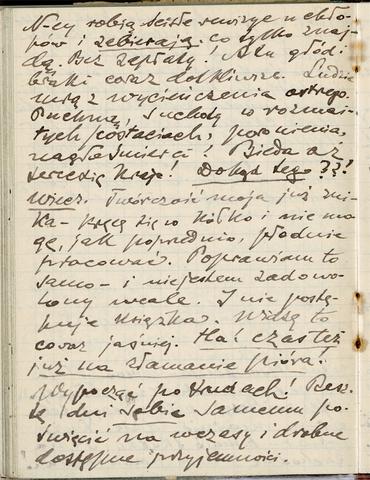 N-cy robią ścisłe rewizye u chło-
pów i zabierają co tylko znaj-
dą. Bez zapłaty! A tu głód i
braki coraz dotkliwsze. Ludzie
mrą z wycieńczenia ostrego.
Puchną, suchoty w rozmai-
tych postaciach, poronienia,
nagła śmierć! Bieda aż
serce się kraje! Dokąd tego??!
Wiecz. Twórczość moja już zni-
ka - kręcę się w kółko i nie mo-
gę, jak poprzednio, płodnie
pracować. Poprawiam to
samo - i nie jestem zadowo-
lony wcale. I nie postę-
puje książka. Widzę to
coraz jaśniej. Ha! czas też
już na złamanie pióra!
Wypocząć po trudach! Resz-
tę dni sobie samemu po-
święcić na wczasy i drobne
dostępne przyjemności.